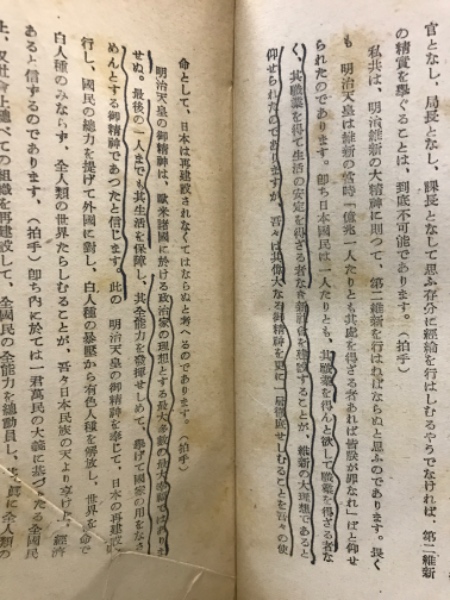 官となし、局長となし、課長となして思ふ存分に經綸を行はしむるやうでなければ、第二維新
の精實を擧ぐることは、到底不可能であります。(拍手)
私共は、明治維新の大精神に則つて、第二維新を行はねばならぬと思ふのであります。畏く
も 明治天皇は維新の當時「億兆一人たりとも其處を得ざる者あれば皆朕が罪なれ」ばと仰せ
られたのであります。卽ち日本國民は一人たりとも、其職業を得んと欲して職業を得ざる者な
く、其職業を得て生活の安定を得ざる者なき新社會を建設することが、維新の大理想であると
仰せられたのでありますが、吾々は其偉大な御精神を更に一層徹底せしむることを吾々の使
命として、日本は再建設されなくてはならぬと考へるのであります。(拍手)
明治天皇の御精神は、歐米諸國に於ける政治家の理想とする最大多數の最大幸福ではありま
せぬ。最後の一人までも其生活を保障し、其全能力を發揮せしめて、擧げて國家の用をなさし
めんとする御精神であつたと信じます。此の 明治天皇の御精神を奉じて、日本の再建設
行し、國民の總力を提げて外國に對し、白人種の暴壓から有色人種を解放し、世界を
白人種のみならず、全人類の世界たらしむることが、吾々日本民族の天より享けた
あると信ずるのであります、(拍手)卽ち內に於ては一君萬民の大義に基づ たる全國民
經濟
上、又社會上總べての組織を再建設して、全國民の全能力を總動員し、 全人類の